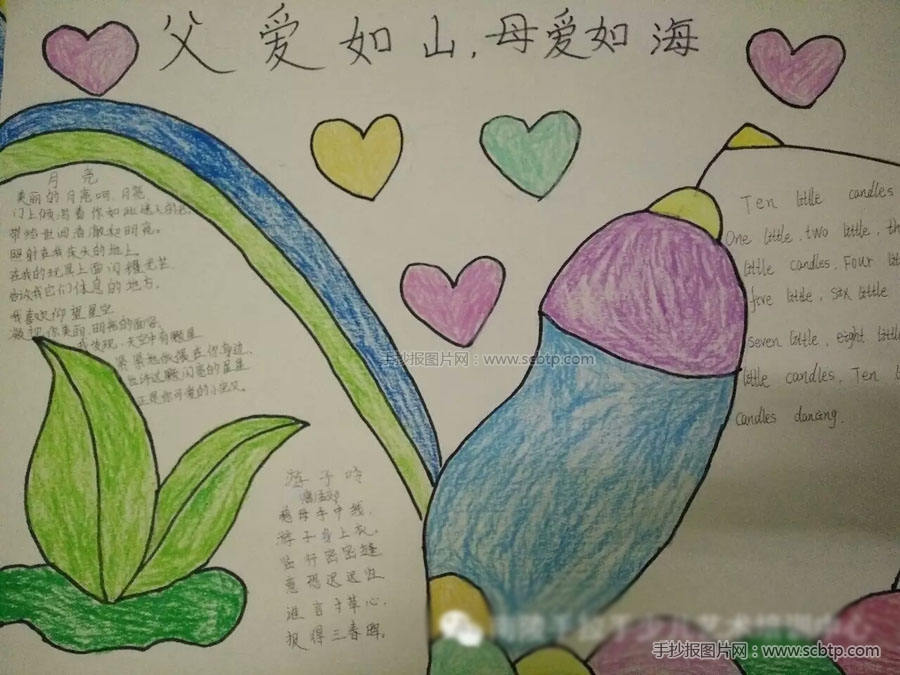 父爱如山,母爱如海
月亮
美丽的月亮啊,月亮
门上倾泻着你如此迷人的光
带给世间清澈和明夜。
照射在我床头的地上
在我的玩具上面闪耀光芒
告诉我它们休息的地方。
我喜欢仰望星空
你美丽,明亮的面容
我发现,天空中有颗星
紧紧地依偎在你身边,
也许这颗闪亮的星星
正是你可爱的小宝贝
游子吟
慈母手中线,
游子身上衣。
临行密密缝
意恐迟迟归
谁言寸草心,
报得三春晖。
Ten little candles
One little, two little, th
little candles, Four lit
five little, six little
seven little, eight littl
little candles, Ten l
candles dancing.
手抄报图片网:www.scbtp.com
手抄报图片网:www.scbtp.com